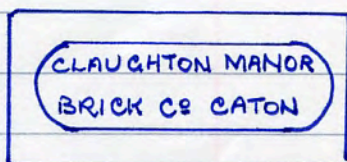 CLAUGHTON MANOR
BRICK Cº CATON